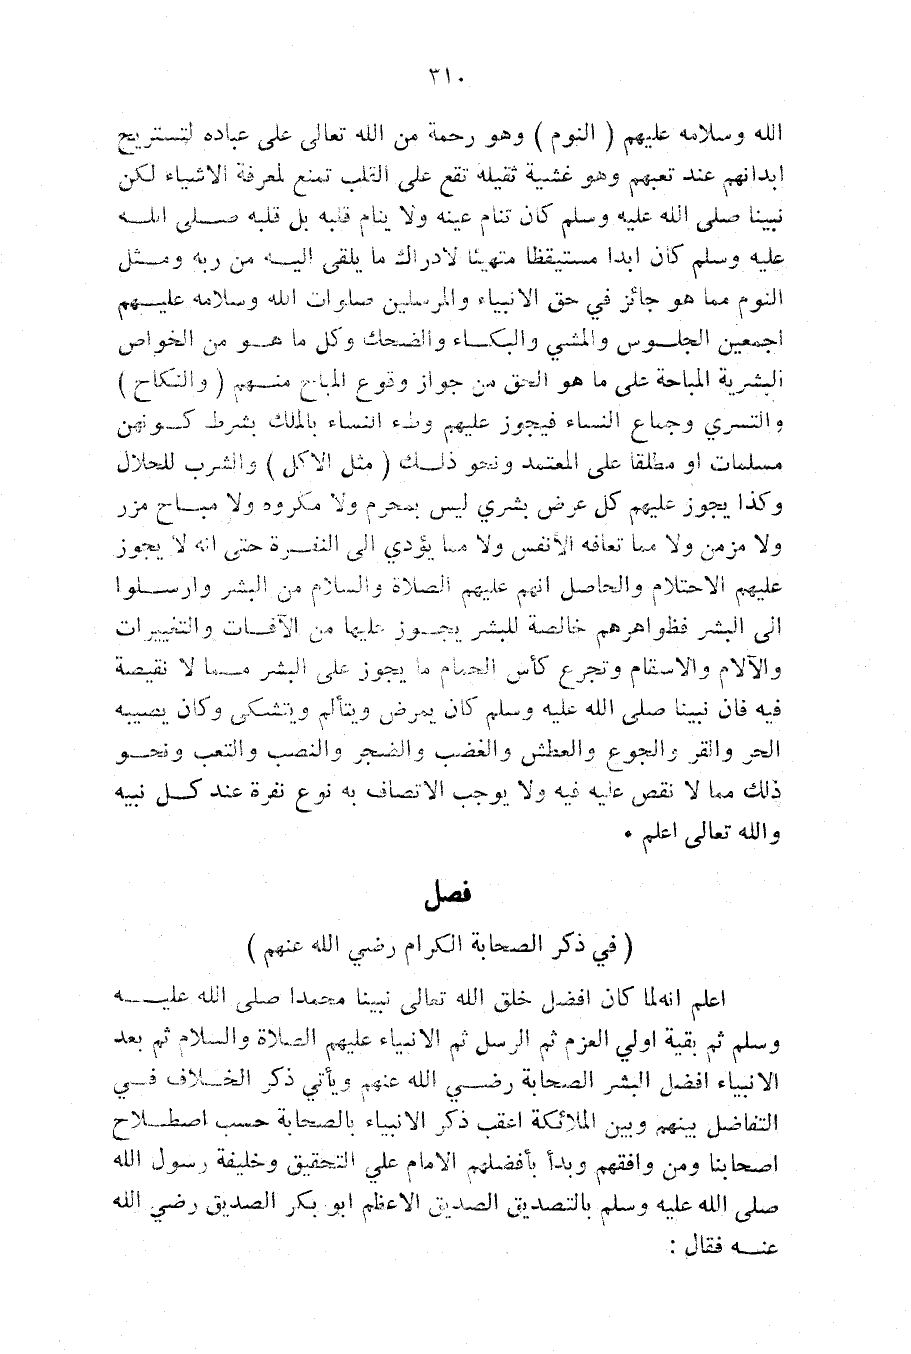 ٣١٠
الله وسلامه عليهم ( النوم ) وهو رحمة من الله تعالى على عباده لتستريح
ابدانهم عند تعبهم وهو غشية ثقيلة تقع على القلب تمنع لمعرفة الاشياء لكن
نبينا صلى الله عليه وسلم كان تنام عينه ولا ينام قلبه بل قلبه صلى الله
عليه وسلم كان ابدا مستيقظا متهيئا لادراك ما يلقى اليه من ربه ومثل
النوم مما هو جائز في حق الانبياء والمرسلين صلوات الله وسلامه عليهم
اجمعين الجلوس والمشي والبكاء والضحك وكل ما هو من الخواص
البشرية المباحة على ما هو الحق من جواز وقوع المباح منهم ( والنكاح )
والتسري وجماع النساء فيجوز عليهم وطء النساء بالملك بشرط كونهن
مسلمات او مطلقا على المعتمد ونحو ذلك ( مثل الاكل ) والشرب للحلال
وكذا يجوز عليهم كل عرض بشري ليس بمحرم ولا مكروه ولا مباح مزر
ولا مزمن ولا مما تعافه الأنفس ولا مما يؤدي الى النفرة حتى انه لا يجوز
عليهم الاحتلام والحاصل انهم عليهم الصلاة والسلام من البشر وارسلوا
الى البشر فظواهرهم خالصة للبشر يجوز عليها من الآفات والتغييرات
والآلام والاسقام وتجرع كأس الحمام ما يجوز على البشر مما لا نقيصة
فيه فان نبينا صلى الله عليه وسلم كان يمرض ويتألم ويتشكى وكان يصيبه
الحر والقر والجوع والعطش والغضب والضجر والنصب والتعب ونحو
ذلك مما لا نقص عليه فيه ولا يوجب الاتصاف به نوع نفرة عند كل نبيه
والله تعالى اعلم .
فصل
( في ذكر الصحابة الكرام رضي الله عنهم )
اعلم انه لما كان افضل خلق الله تعالى نبينا محمدا صلى الله عليه
وسلم ثم بقية اولي العزم ثم الرسل ثم الانبياء عليهم الصلاة والسلام ثم بعد
الانبياء افضل البشر الصحابة رضي الله عنهم ويأتي ذكر الخلاف في
التفاضل بينهم وبين الملائكة اعقب ذكر الانبياء بالصحابة حسب اصطلاح
اصحابنا ومن وافقهم وبدأ بأفضلهم الامام علي التحقيق وخليفة رسول الله
صلى الله عليه وسلم بالتصديق الصديق الاعظم ابو بكر الصديق رضي الله
عنه فقال :